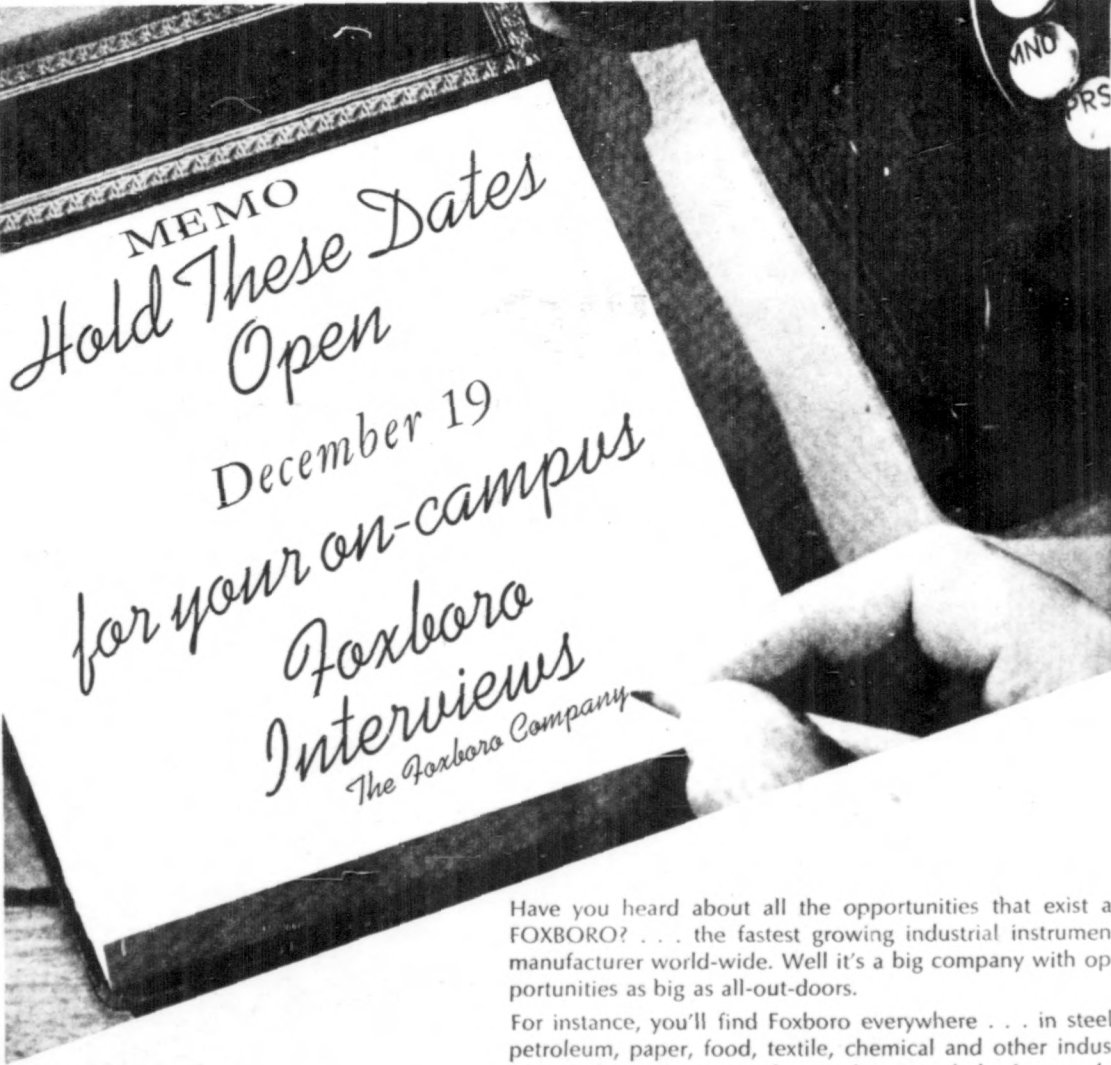 MNO
PRS
MEMO
Hold These Dates
Open
December 19
for your on-campus
Foxboro
Interviews
The Foxboro Company
Have you heard about all the opportunities that exist a
FOXBORO? . . . the fastest growing industrial instrumen
manufacturer world-wide. Well it's a big company with op
portunities as big as all-out-doors.
For instance, you'll find Foxboro everywhere . . . in steel
petroleum, paper, food, textile, chemical and other indus